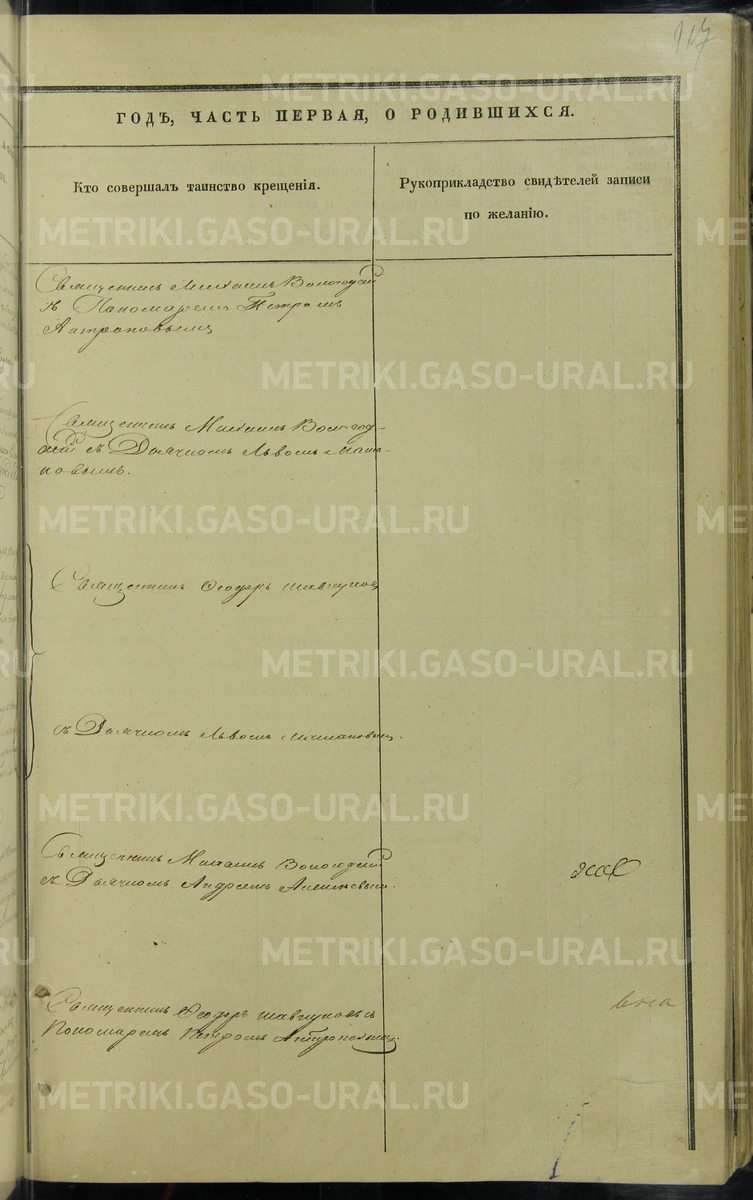 117
ГОДЪ, ЧАСТЬ ПЕРВАЯ, О РОДИВШИХСЯ.
Кто совершалъ таинство крещенія.
Рукоприкладство свидѣтелей записи
по желанію.
Священникъ Михаилъ Вологодскій
съ Пономаремъ Петромъ
Антроповымъ
Священникъ Михаилъ Вологод-
скій съ Дьячкомъ Львомъ
Священникъ Ѳеодоръ
съ Дьячкомъ Львомъ
Священникъ Михаилъ Вологодскій
съ Дьячкомъ Андреемъ
Священникъ Ѳеодоръ съ
Пономаремъ Петромъ Антроповымъ.
METRIKI.GASO-URAL.RU